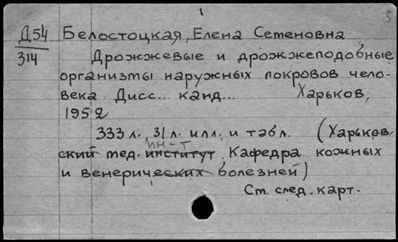 Д54 Белостоцкая, Елена Семеновна
314
Дрожжевые и дрожжеподобные
организмы наружных покровов чело-
века. Дисс... канд... Харьков,
1952
333 л., 31 л. илл. и табл. (Харьков-
ский мед. ин-т институт, Кафедра кожных
и венерических болезней)
См. след. карт.